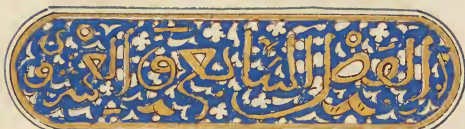 الفصل السابع والعشرون